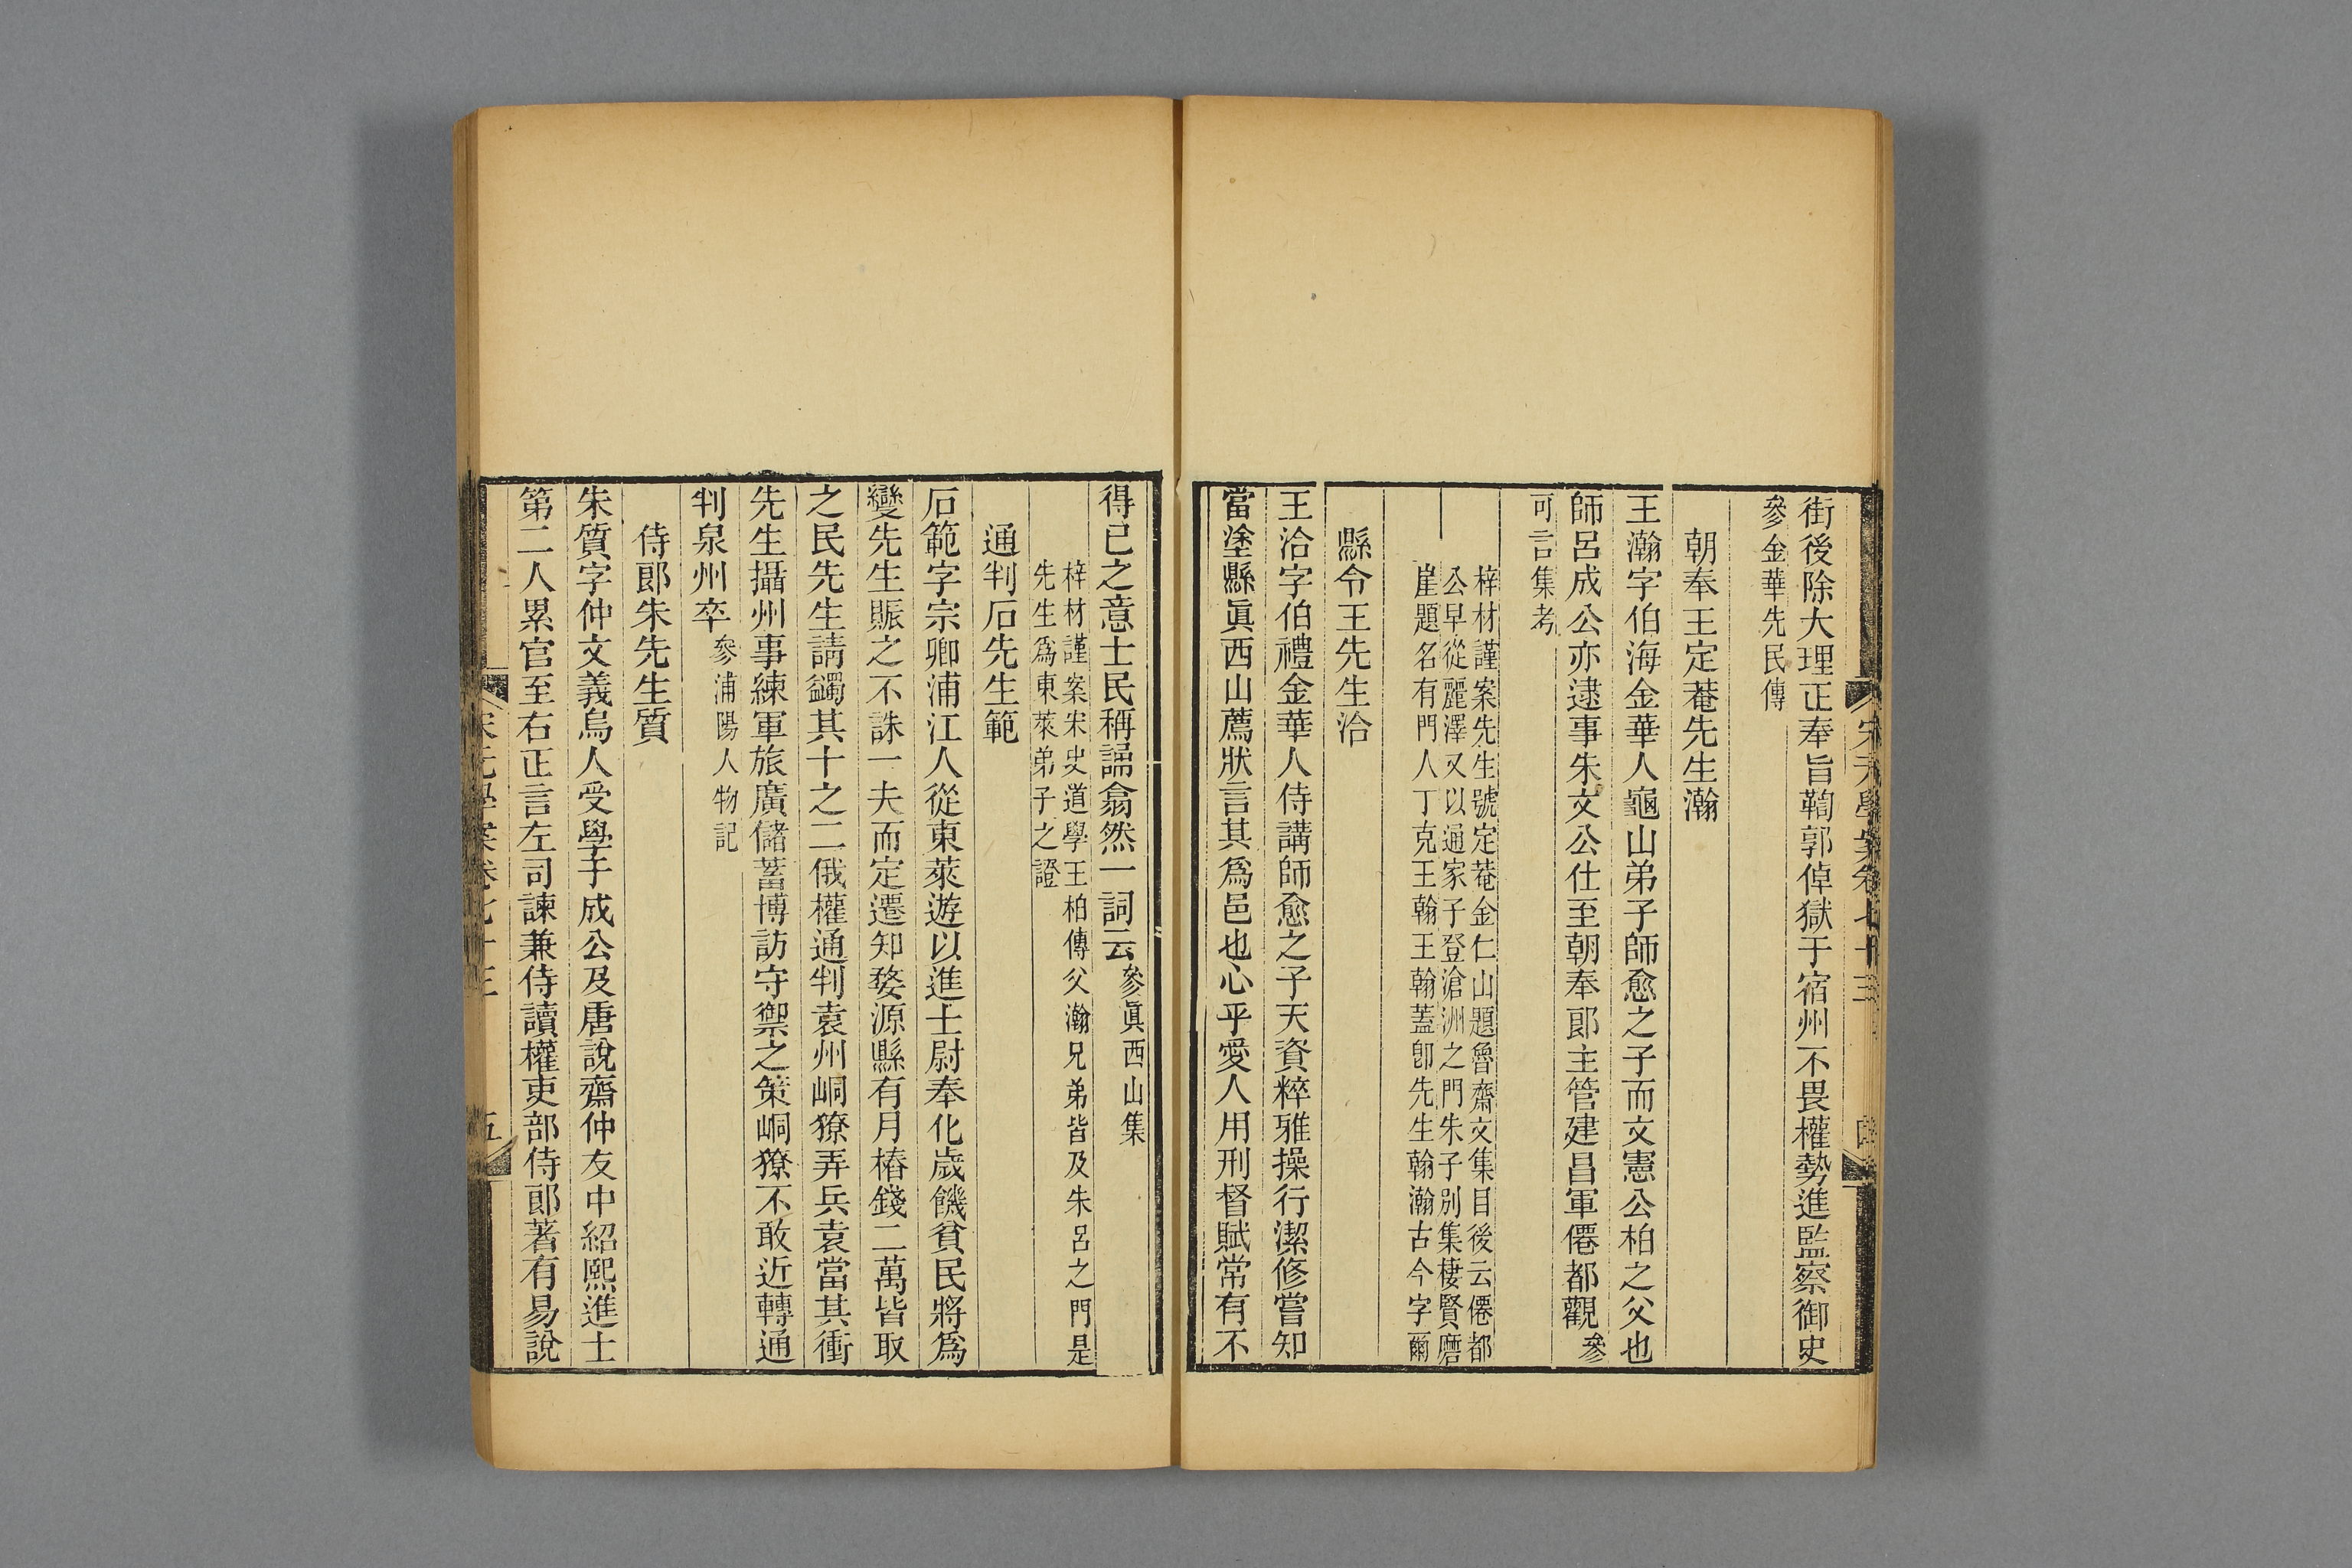 街後除大理正奉旨鞫郭倬獄于宿州不畏權勢進監察御史
參金華先民傳
朝奉王定菴先生瀚
王瀚字伯海金華人龜山弟子師愈之子而文憲公柏之父也
師呂成公亦逮事朱文公仕至朝奉郎主管建昌軍僊都觀參
可言集考
梓材謹案先生號定菴金仁山題魯齋文集目後云僊都
公早從麗澤又以通家子登滄洲之門朱子別集棲賢磨
崖題名有門人丁克王翰王翰蓋卽先生翰瀚古今字爾
縣令王先生洽
王洽字伯禮金華人侍講師愈之子天資粹雅操行潔修嘗知
當塗縣眞西山薦狀言其爲邑也心乎愛人用刑督賦常有不
得已之意士民稱誦翕然一詞云參眞西山集
梓材謹案宋史道學王柏傳父瀚兄弟皆及朱呂之門是
先生爲東萊弟子之證
通判石先生範
石範字宗卿浦江人從東萊遊以進士尉奉化歲饑貧民將爲
變先生賑之不誅一夫而定遷知婺源縣有月樁錢二萬皆取
之民先生請蠲其十之二俄權通判袁州峒獠弄兵袁當其衝
先生攝州事練軍旅廣儲蓄博訪守禦之策峒獠不敢近轉通
判泉州卒參浦陽人物記
侍郎朱先生質
朱質字仲文義烏人受學于成公及唐說齋仲友中紹熙進士
第二人累官至右正言左司諫兼侍讀權吏部侍郎著有易說
宋元學案卷七十三
五